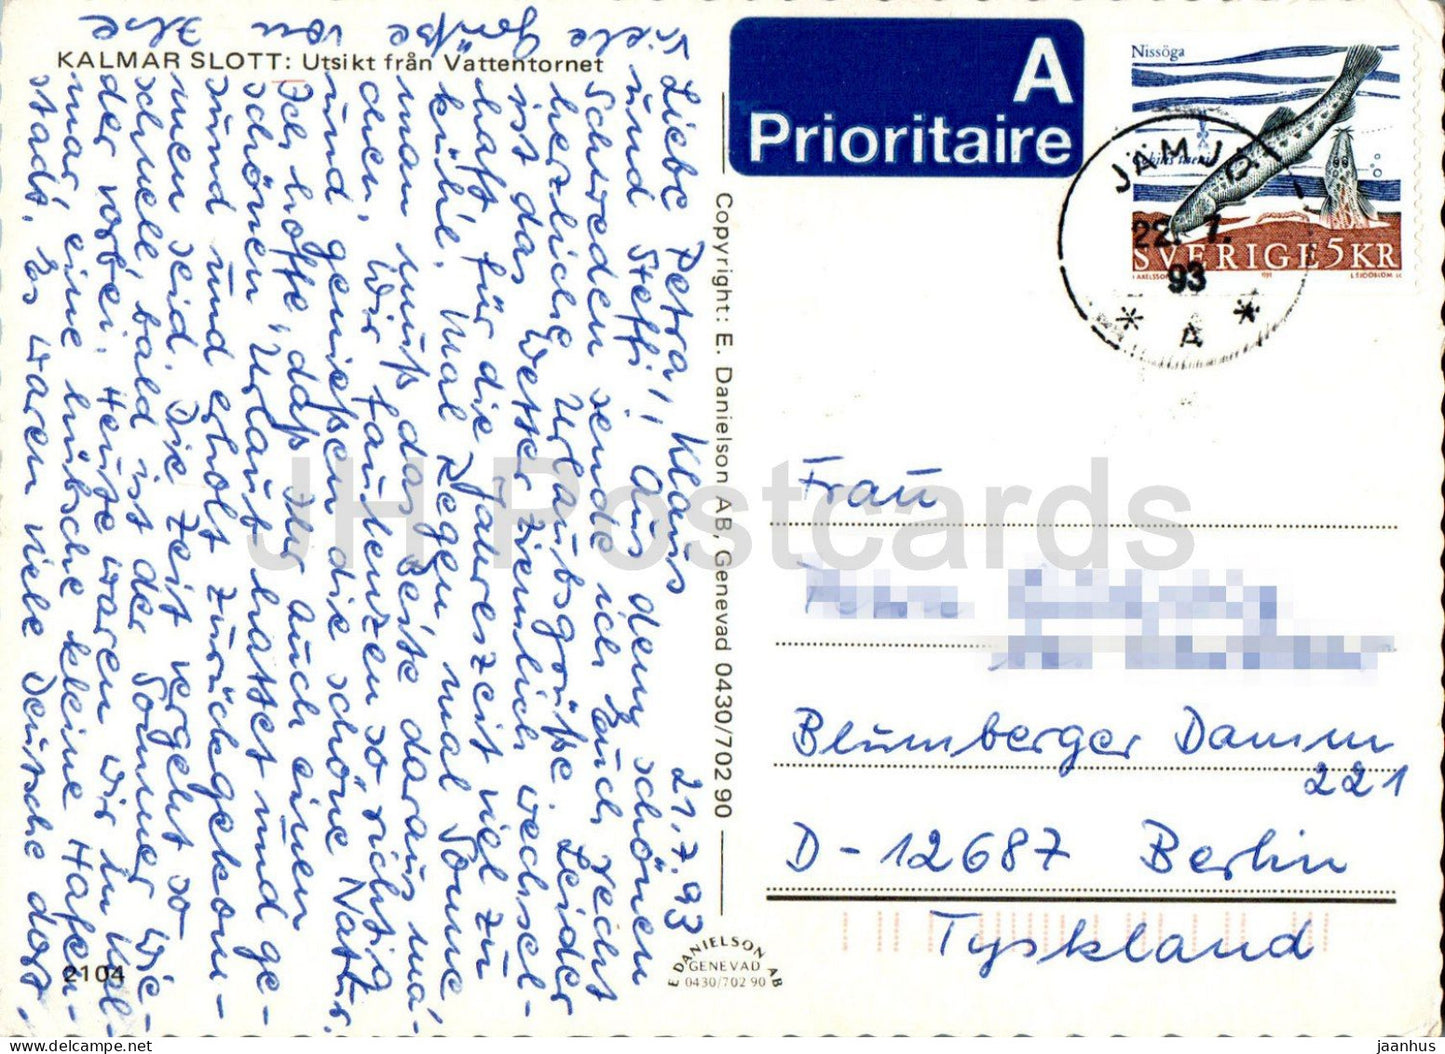 KALMAR SLOTT: Utsikt från Vattentornet
21.7.93
Liebe Petra, Klaus
und Steffi! Aus dem schönen
Schweden sende ich Euch recht
herzliche Urlaubsgrüße. Leider
ist das Wetter ziemlich wechsel-
haft für die Jahreszeit viel zu
kühl. Mal Regen, mal Sonne,
man muß das Beste daraus ma-
chen. Wir faulenzen so richtig
und genießen die schöne Natur.
Ich hoffe, daß Ihr auch einen
schönen Urlaub hattet und ge-
sund und erholt zurückgekom-
men seid. Die Zeit vergeht so
schnell, bald ist der Sommer wie-
der vorbei. Heute waren wir in Kal-
mar, eine hübsche kleine Hafen-
stadt. Es waren viele Deutsche dort.
Viele Grüße von
Ihre
2104
Copyright: E. Danielson AB, Genevad 0430/702 90
E DANIELSON AB
GENEVAD
0430/702 90
A
Prioritaire
Nissöga
SVERIGE 5KR
I AXELSSON 1991 L SJÖÖBLOM SC
JÄMJÖ
22. 7.
93
* A *
Frau
Blumberger Damm
221
D-12687 Berlin
Tyskland
JH Postcards
jaanhus | ecwid.com